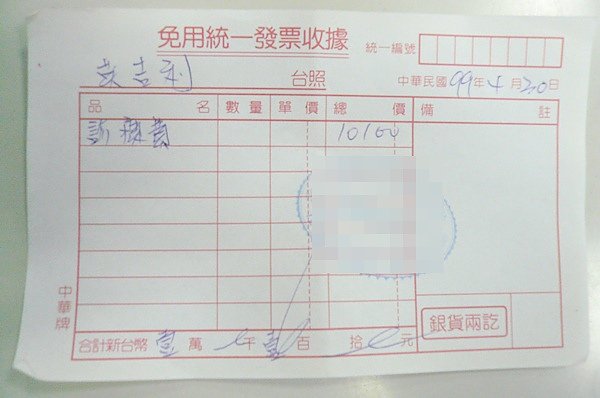 免用統一發票收據
統一編號
吉利 台照 中華民國99年4月30日
品名 數量 單價 總價 備註
訓練費 10100
中華牌
銀貨兩訖
合計新台幣壹萬 千壹百 拾 元